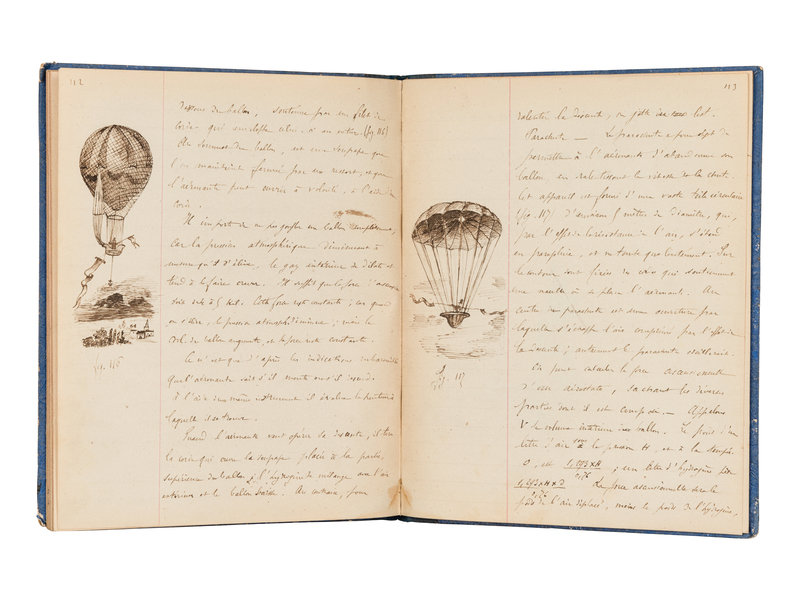 112
dessous du ballon, soutenue par un filet de
corde qui enveloppe celui-ci en entier (fig. 116)
Au sommet du ballon, est une soupape que
l'on maintient fermée par un ressort, et que
l'aéronaute peut ouvrir à volonté, à l'aide d'une
corde.
Il importe de ne pas gonfler un ballon complètement,
car la pression atmosphérique diminuant à
mesure qu'il s'élève, le gaz intérieur se dilate et
tend à le faire crever. Il suffit que la force d'ascension
soit de 4 à 5 kil. Cette force est constante; car quand
on s'élève, la pression atmosph. diminue; mais le
vol. du ballon augmente, et la force reste constante.
Ce n'est que d'après les indications du baromètre
que l'aéronaute sait s'il monte ou s'il descend.
A l'aide du même instrument il évalue la hauteur à
laquelle il se trouve.
Quand l'aéronaute veut opérer sa descente, il tire
la corde qui ouvre la soupape placée à la partie
supérieure du ballon, l'hydrogène se mélange avec l'air
extérieur et le ballon baisse. Au contraire, pour
fig. 116
113
ralentir la descente, on jette du lest.
Parachute — Le parachute a pour objet de
permettre à l'aéronaute d'abandonner son
ballon, en ralentissant la vitesse de la chute.
Cet appareil est formé d'une vaste toile circulaire
(fig. 117) d'environ 5 mètres de diamètre, qui,
par l'effet de la résistance de l'air, s'étend
en parapluie, et ne tombe que lentement. Sur
le contour sont fixées des cordes qui soutiennent
une nacelle où se place l'aéronaute. Au
centre du parachute est une ouverture par
laquelle s'échappe l'air comprimé par l'effet de
la descente; autrement le parachute oscillerait.
On peut calculer la force ascensionnelle
d'un aérostat, sachant les diverses
parties dont il est composé. — Appelons
V le volume intérieur du ballon. Le poids d'un
litre d'air à la pression H, et à la temp.
0, est 1,293 x H / 0,76; un litre d'hydrogène pèse
1,293 x H x D / 0,76 La force ascensionnelle sera le
poids de l'air déplacé, moins le poids de l'hydrogène,
fig. 117